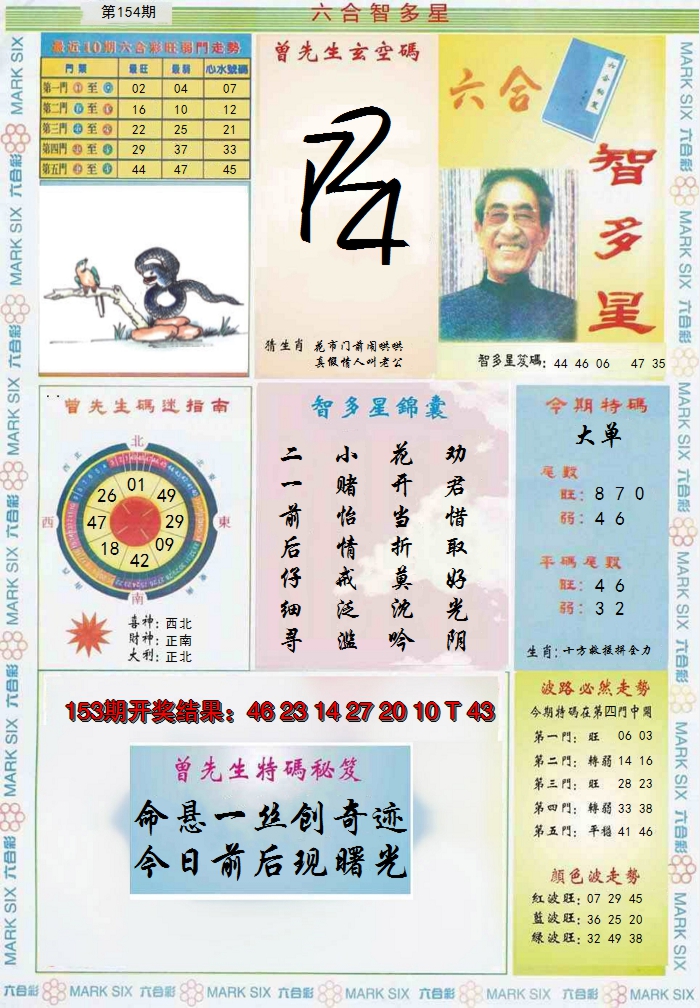 第154期
六合智多星
最近10期六合彩旺弱門走勢
門類 最旺 最弱 心水號碼
第一門 至 02 04 07
第二門 至 16 10 12
第三門 至 22 25 21
第四門 至 29 37 33
第五門 至 44 47 45
曾先生玄空碼
猜生肖 花市门前闹哄哄
真假情人叫老公
六合
智多星
智多星笈碼: 44 46 06 47 35
曾先生碼迷指南
北
西
東
南
01
49
29
09
42
18
47
26
喜神: 西北
財神: 正南
大利: 正北
智多星錦囊
劝君惜取好光阴
花开当折莫沈吟
小赌怡情戒泛滥
二一前后仔细寻
今期特碼
大单
尾數
旺: 8 7 0
弱: 4 6
平碼尾數
旺: 4 6
弱: 3 2
生肖: 十方救援拼全力
153期开奖结果: 46 23 14 27 20 10 T 43
曾先生特碼秘笈
命悬一丝创奇迹
今日前后现曙光
波路必然走勢
今期特碼在第四門中開
第一門: 旺 06 03
第二門: 轉弱 14 16
第三門: 旺 28 23
第四門: 轉弱 33 38
第五門: 平穩 41 46
顏色波走勢
紅波旺: 07 29 45
藍波旺: 36 25 20
綠波旺: 32 49 38
MARK SIX 六合彩